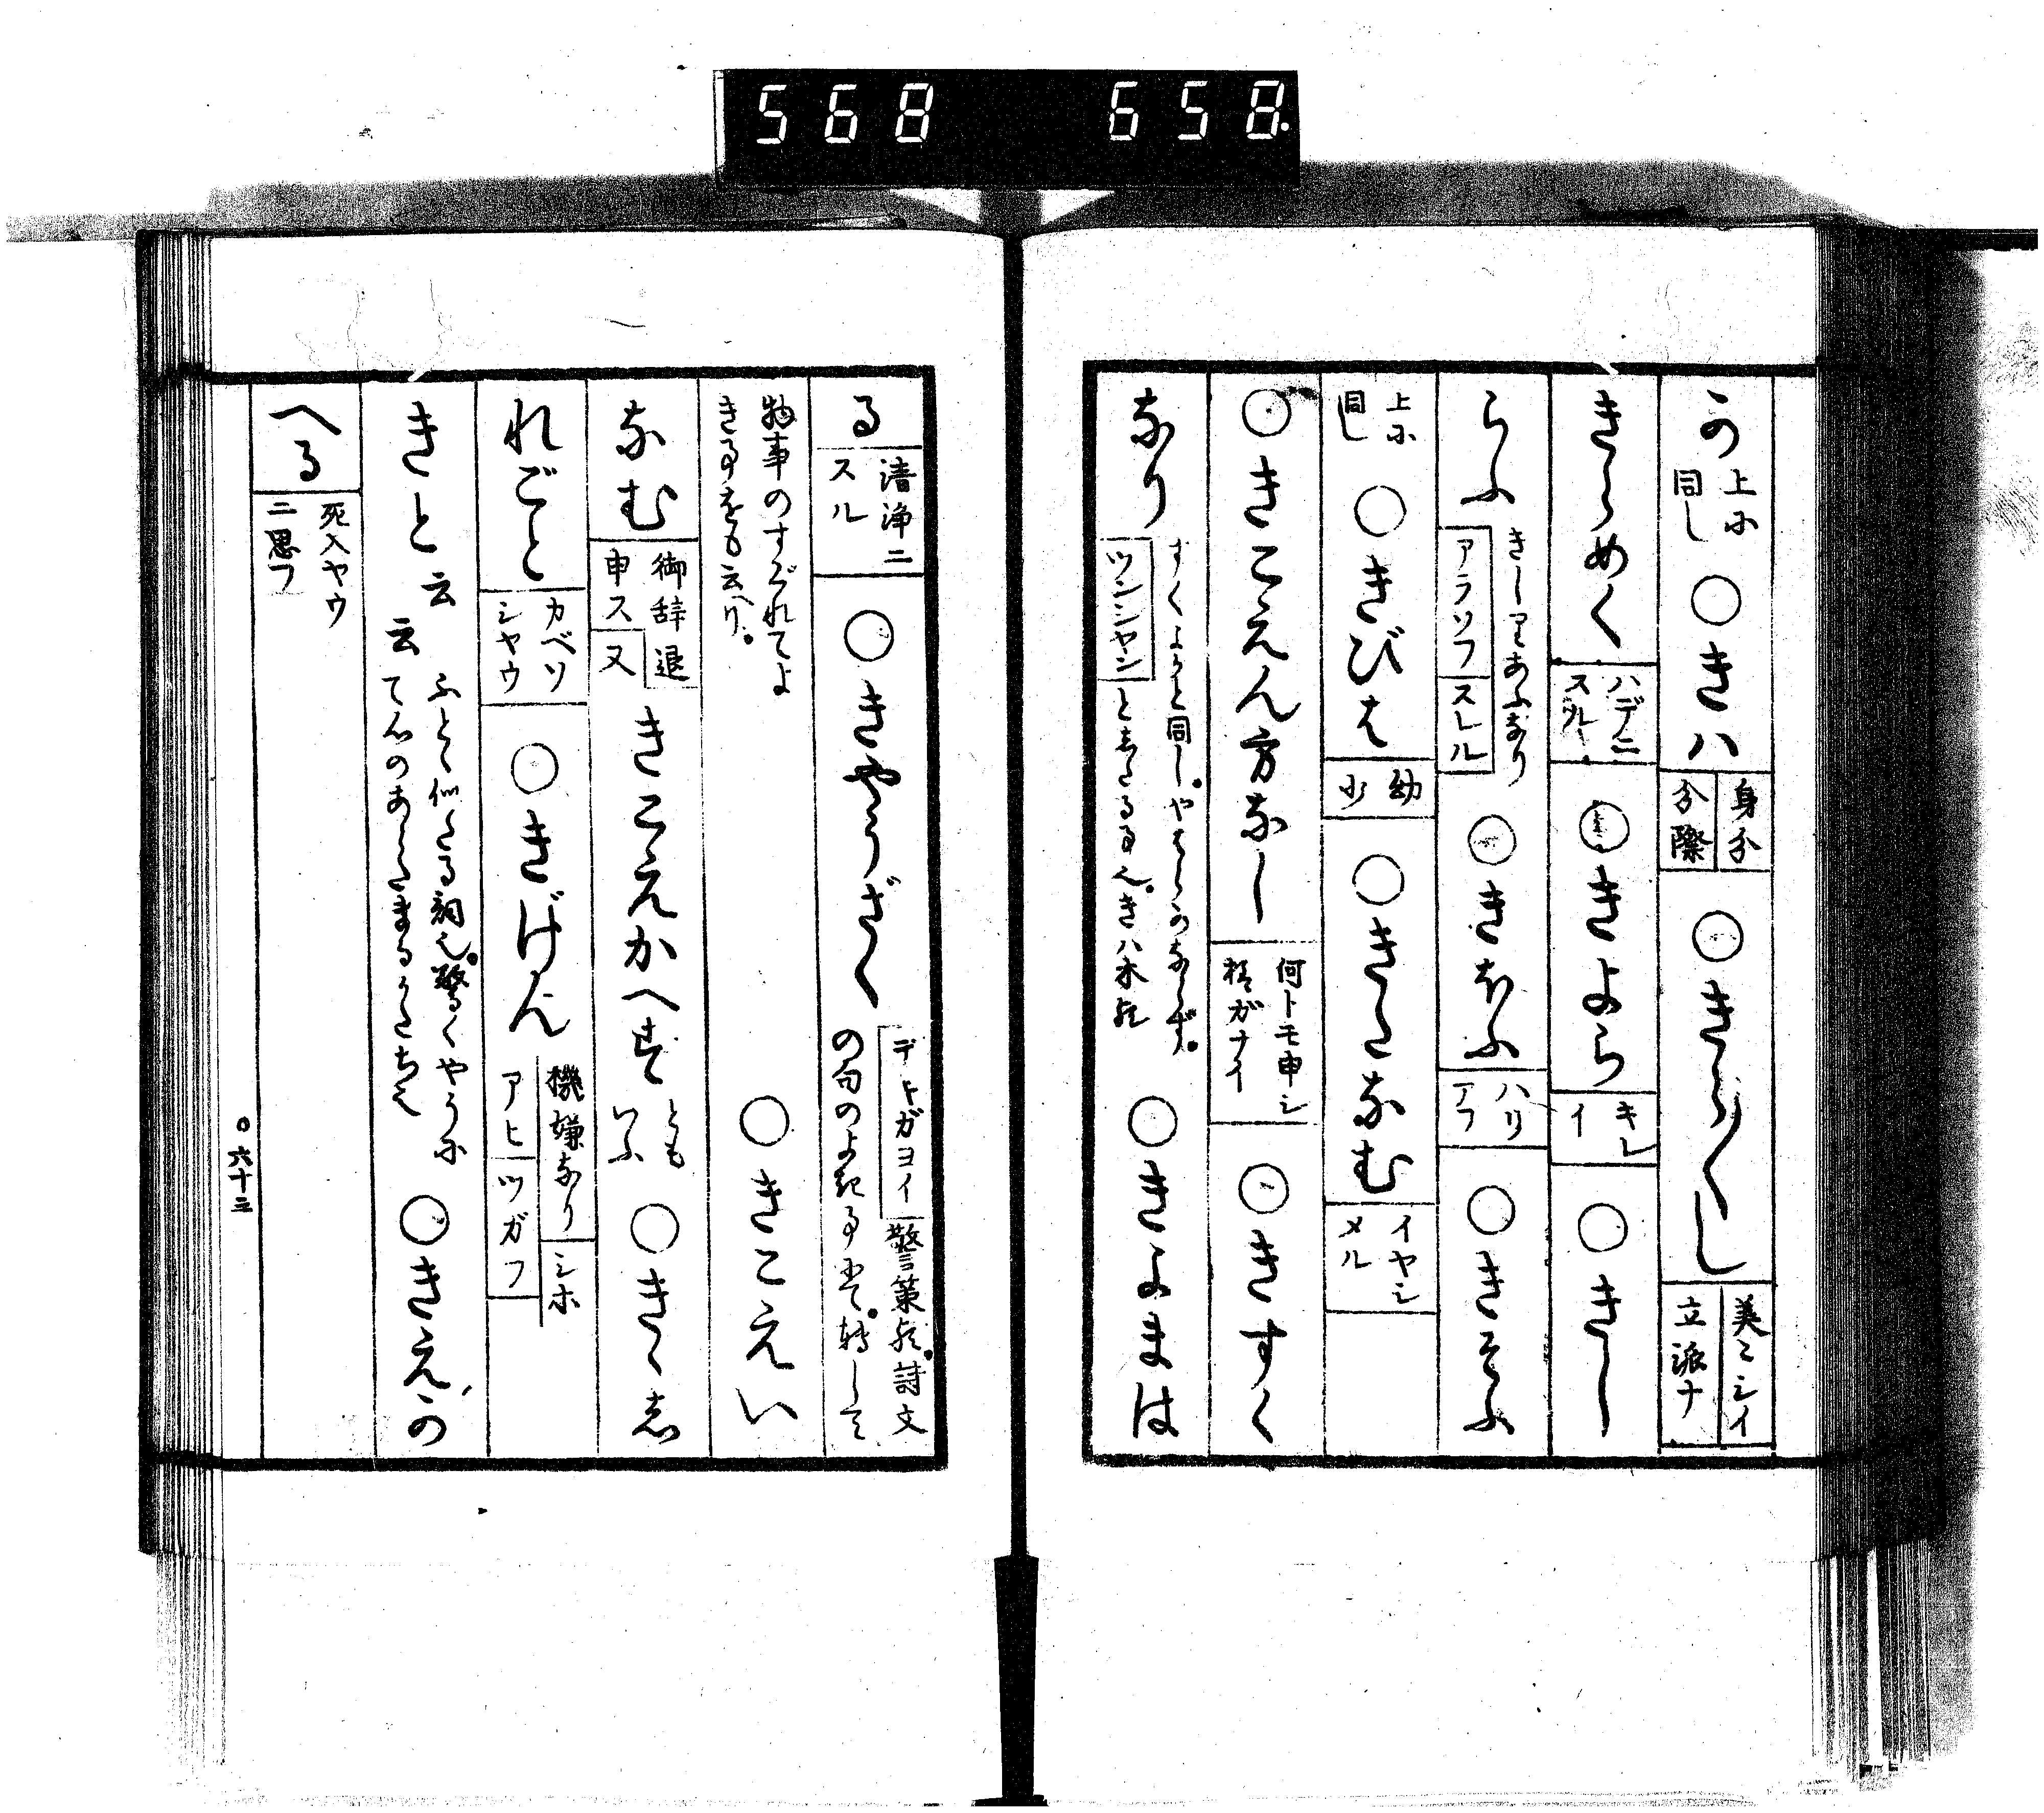 568 658.
の 上に同し ○きハ 身分 分際 ○きら〱し 美シイ 立派ナ
きらめく ハデニスル ○きよら キレイ ○きし
らふ きしりあふなり アラソフ スレル ○きほふ ハリアフ ○きそふ
上に同し ○きびは 幼少 ○きたなむ イヤシメル
○きこえん方なし 何トモ申シ様ガナイ ○きすく
なり すくよかと同し。やはらかならず。 ツンシヤン としたる事也。きハ木歟 ○きよまは
る 清浄ニスル ○きやうざく デキガヨイ 警策歟。詩文の句のよき事にて。轉して
物事のすぐれてよき事をも云へり。 ○きこえい
なむ 御辞退申ス 又 きこえかへす ともいふ ○きゝし
れごと カベソシヤウ ○きげん 機嫌なり シホアヒ ツガフ
きと云云 ふとに似たる詞也。驚くやうにて心のあらたまるかたち也 ○きえの
へる 死入ヤウニ思フ
○六十三